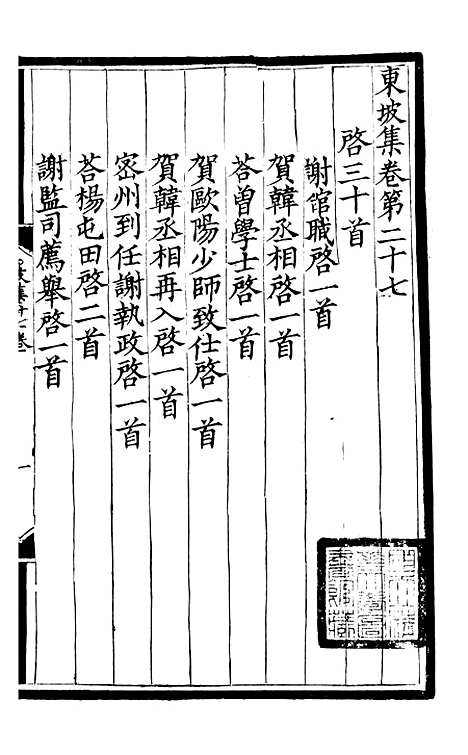 東坡集卷第二十七
啓三十首
謝館職啓一首
賀韓丞相啓一首
荅曽學士啓一首
賀歐陽少師致仕啓一首
賀韓丞相再入啓一首
密州到任謝執政啓一首
荅楊屯田啓二首
謝監司薦舉啓一首